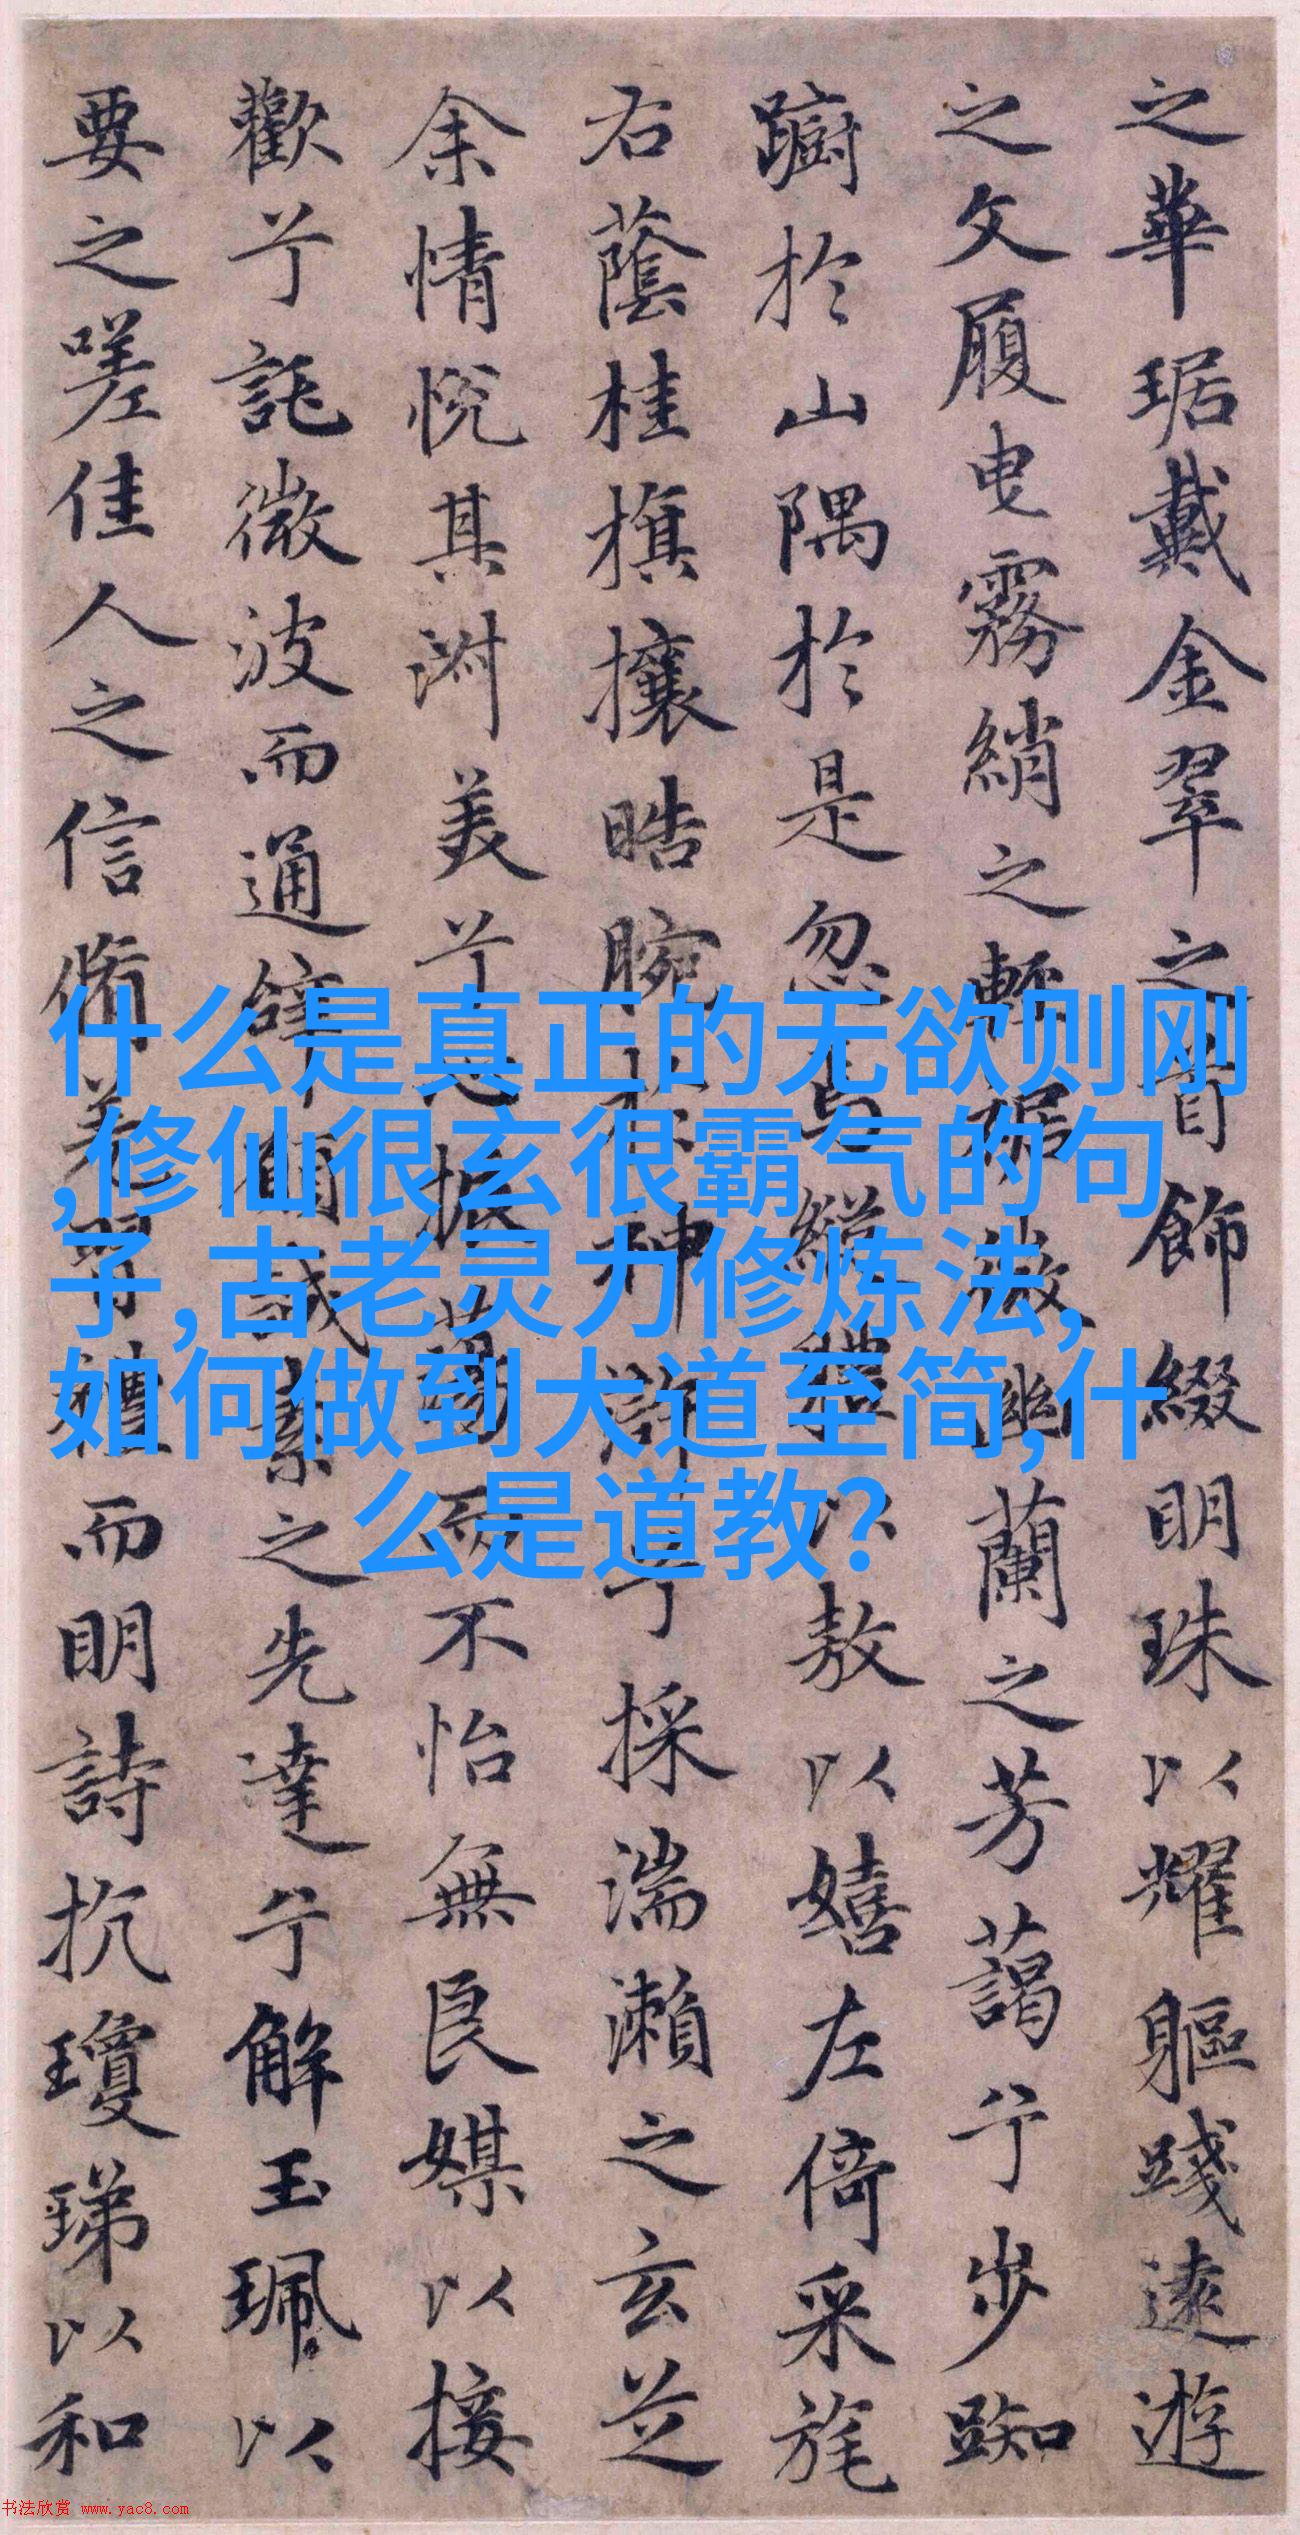 之華琚戴金翠之首飾綴明珠以耀軀踐遠遊
之文履曳霧綃之輕裾微幽蘭之芳藹兮步踟
躕於山隅於是忽焉縱體以敖以嬉左倚采旄
右蔭桂旗攘皓腕於神滸兮採湍瀨之玄芝
余情悅其淑美兮心振蕩而不怡無良媒以接
歡兮託微波而通辭願誠素之先達兮解玉珮以
要之嗟佳人之信脩羌習禮而明詩抗瓊珶以和
什么是真正的无欲则刚
,修仙很玄很霸气的句
子,古老灵力修炼法,
如何做到大道至简,什
么是道教？
书法欣赏 www.yac8.com